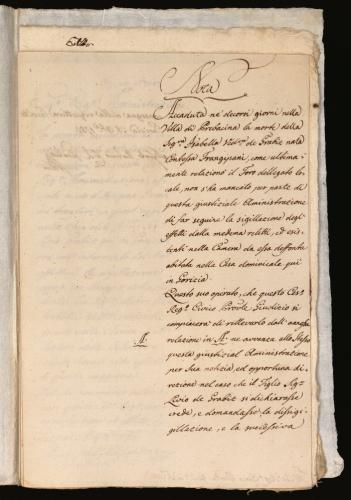 Nota
Accaduta ne' decorsi giorni nella
Villa di Prebacina la morte della
Sig.ra Isabella Ved.va de Grabiz nata
Contessa Frangipani, come ultima-
mente relazionò il Foro dellegato lo-
cale, non s'ha mancato per parte da
questa giudiziale Amministrazione
di far seguire la sigillazione degl'
effetti dalla medema relitti, ed esis-
tenti nella Camera da essa defonta
abitata nella Casa dominicale qui
in Gorizia
Questo suo operato, che questo Ces.
Reg.o Civico Giudizio si
compiacerà di rillevarlo dall'
relazione in A. ne avvanza allo stesso
A.
questa giudizial Amministrazione
per sua notizia, ed opportuna di-
rezione nel caso che il Figlio Sig.r
Livio de Grabiz si dichiarasse
erede, e domandasse la dissigi-
gillazione, e la successiva